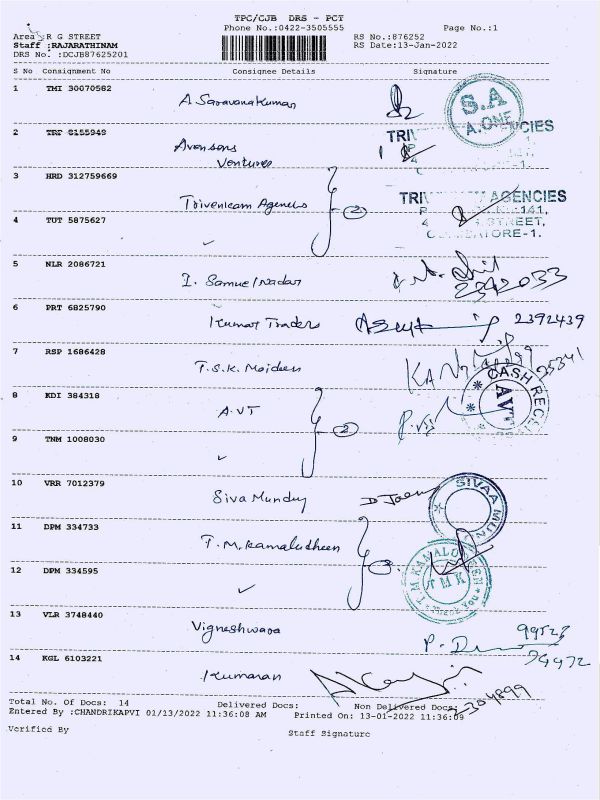 TPC/CJB DRS - PCT
Phone No.:0422-3505555 Page No.:1
Area :R G STREET RS No.:876252
Staff :RAJARATHINAM RS Date:13-Jan-2022
DRS No. :DCJB87625201
S No Consignment No Consignee Details Signature
1 TMI 30070582 A Saravanakumar
S.A
A.ONE
2 TRT 6155949 Avensons
Ventures
3 HRD 312759669 Trivenicam Agencies 2
TRIV AGENCIES
141,
STREET,
ORE-1.
4 TUT 5875627 ✓
5 NLR 2086721 I. Samuel Nadar
2392033
6 PRT 6825790 Kumar Traders 2392439
7 RSP 1686428 T.S.K. Moideen
25341
8 KDI 384318 A.VT 2
CASH RECE
AVT
9 TNM 1008030 ✓
10 VRR 7012379 Siva Mundy
SIVAA MUN
11 DPM 334733 T.M.Kamaludheen
12 DPM 334595 ✓
T M K
Thank You
13 VLR 3748440 Vigneshwara
14 KGL 6103221 Kumaran
2304899
Total No. Of Docs: 14 Delivered Docs: Non Delivered Docs:
Entered By :CHANDRIKAPVI 01/13/2022 11:36:08 AM Printed On: 13-01-2022 11:36:09
Verified By Staff Signature